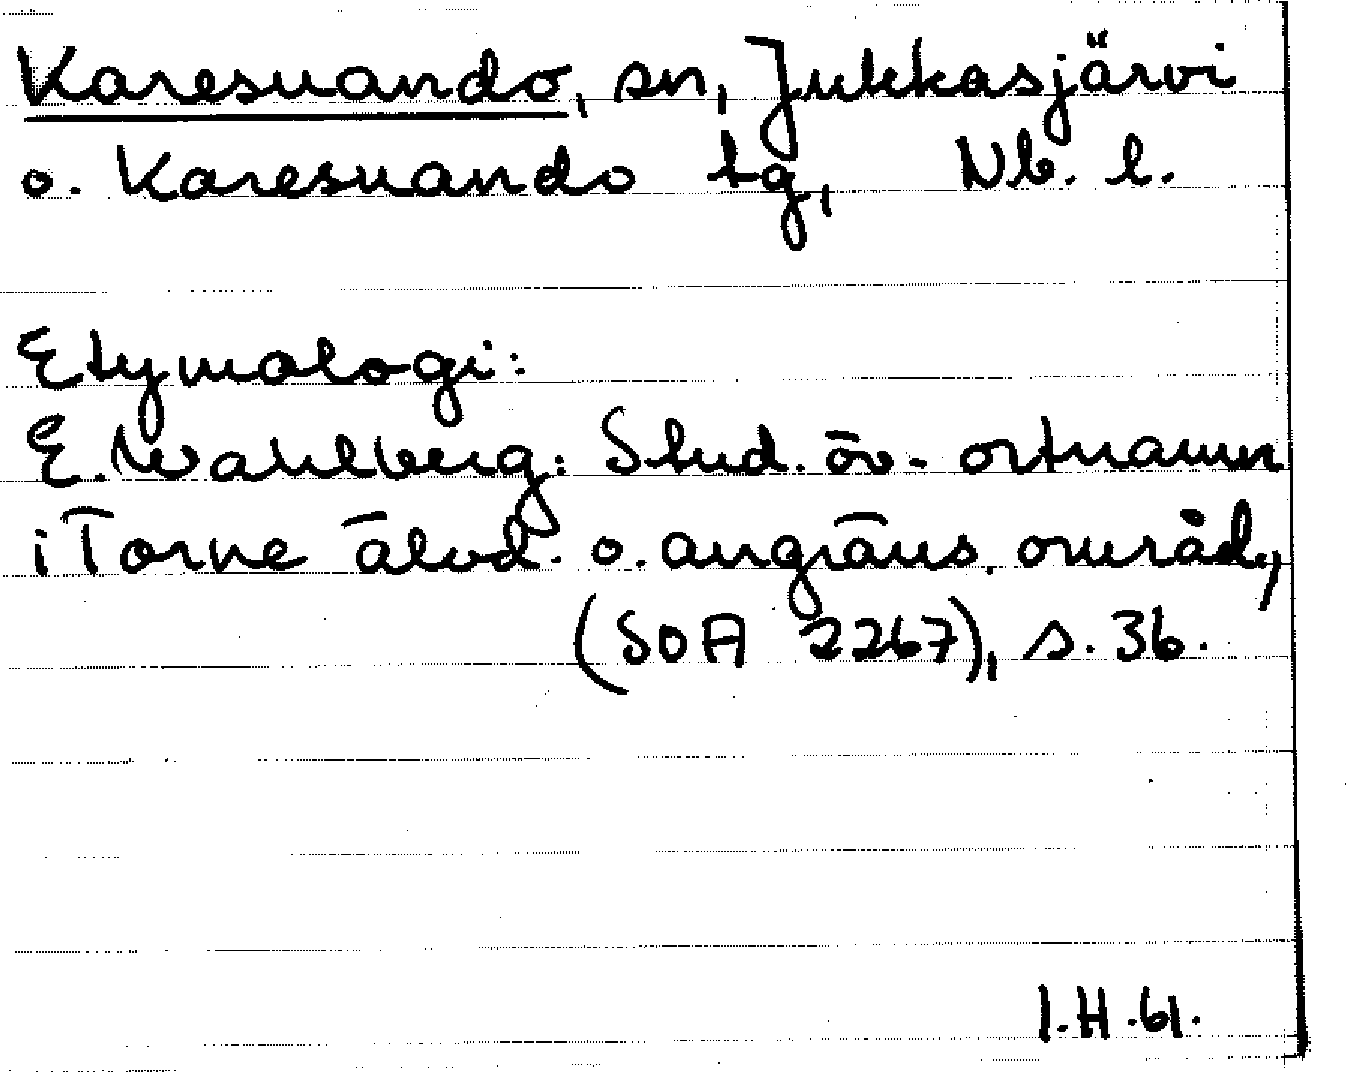 Karesuando, sn, Jukkasjärvi
o. Karesuando tg, Nb. l.
Etymologi:
E. Wahlberg: Stud. öv. ortnamn
i Torne älvd. o. angräns. område,
(SOA 2267), s. 36.
I.H.61.